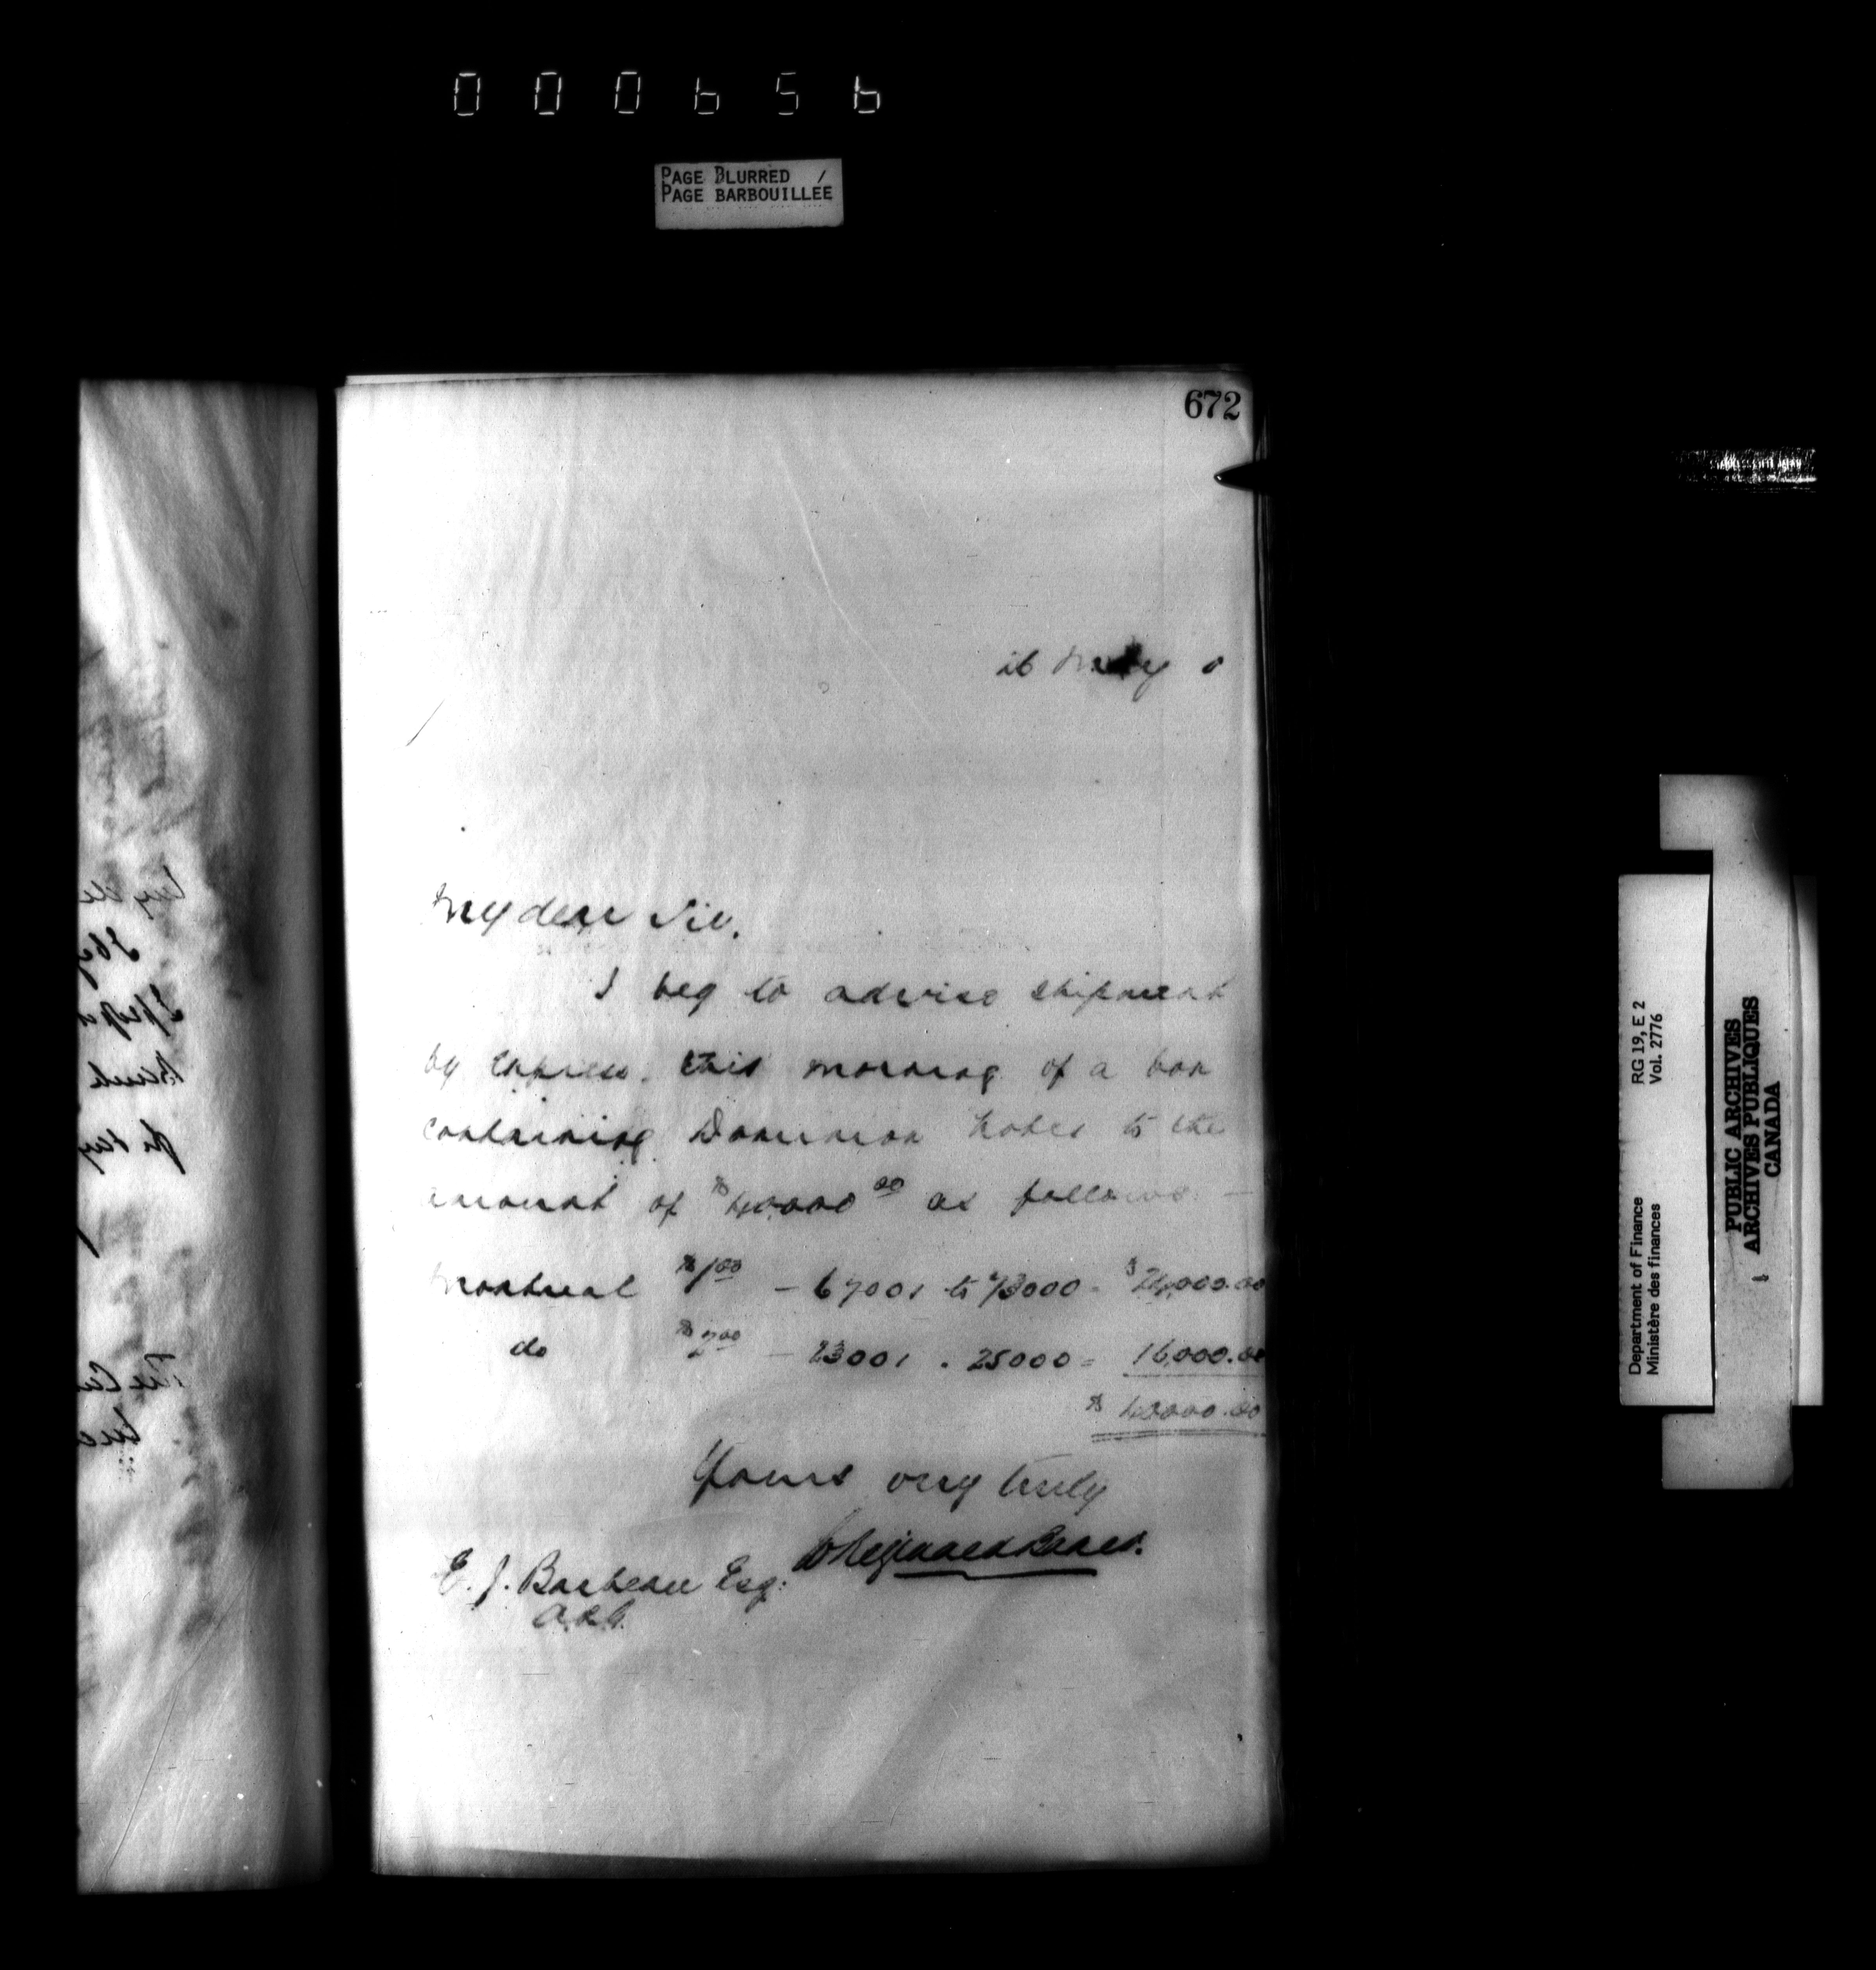 000656
PAGE BLURRED /
PAGE BARBOUILLÉE
672
16 May 0
My dear Sir.
I beg to advise shipment
by express. this morning of a box
containing Dominion Notes to the
amount of $40,000 00 as follows. —
Montreal $1 00 — 67001 to 73000 = $24,000.00
do $2 00 — 23001 . 25000 = 16,000.00
$ 40000.00
Yours very truly
E. J. Barbeau Esq:
Department of Finance RG 19, E 2
Ministère des finances Vol. 2776
PUBLIC ARCHIVES
ARCHIVES PUBLIQUES
CANADA